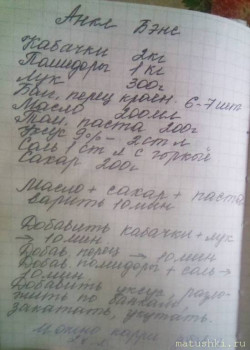 Анкл Бэнс
Кабачки 2кг
Помидоры 1 кг
Лук 300г
Бол. перец красн. 6-7 шт
Масло 200мл
Том. паста 200г
Уксус 9% - 2 ст л
Соль 1 ст л с горкой
Сахар 200г
Масло + сахар + паста
варить 10 мин
Добавить кабачки + лук
→ 10 мин
Добав. перец → 10 мин
Добав. помидоры + соль →
10 мин
Добавить уксус, разло-
жить по банкам,
закатать, укутать.
Можно карри
matushki.ru